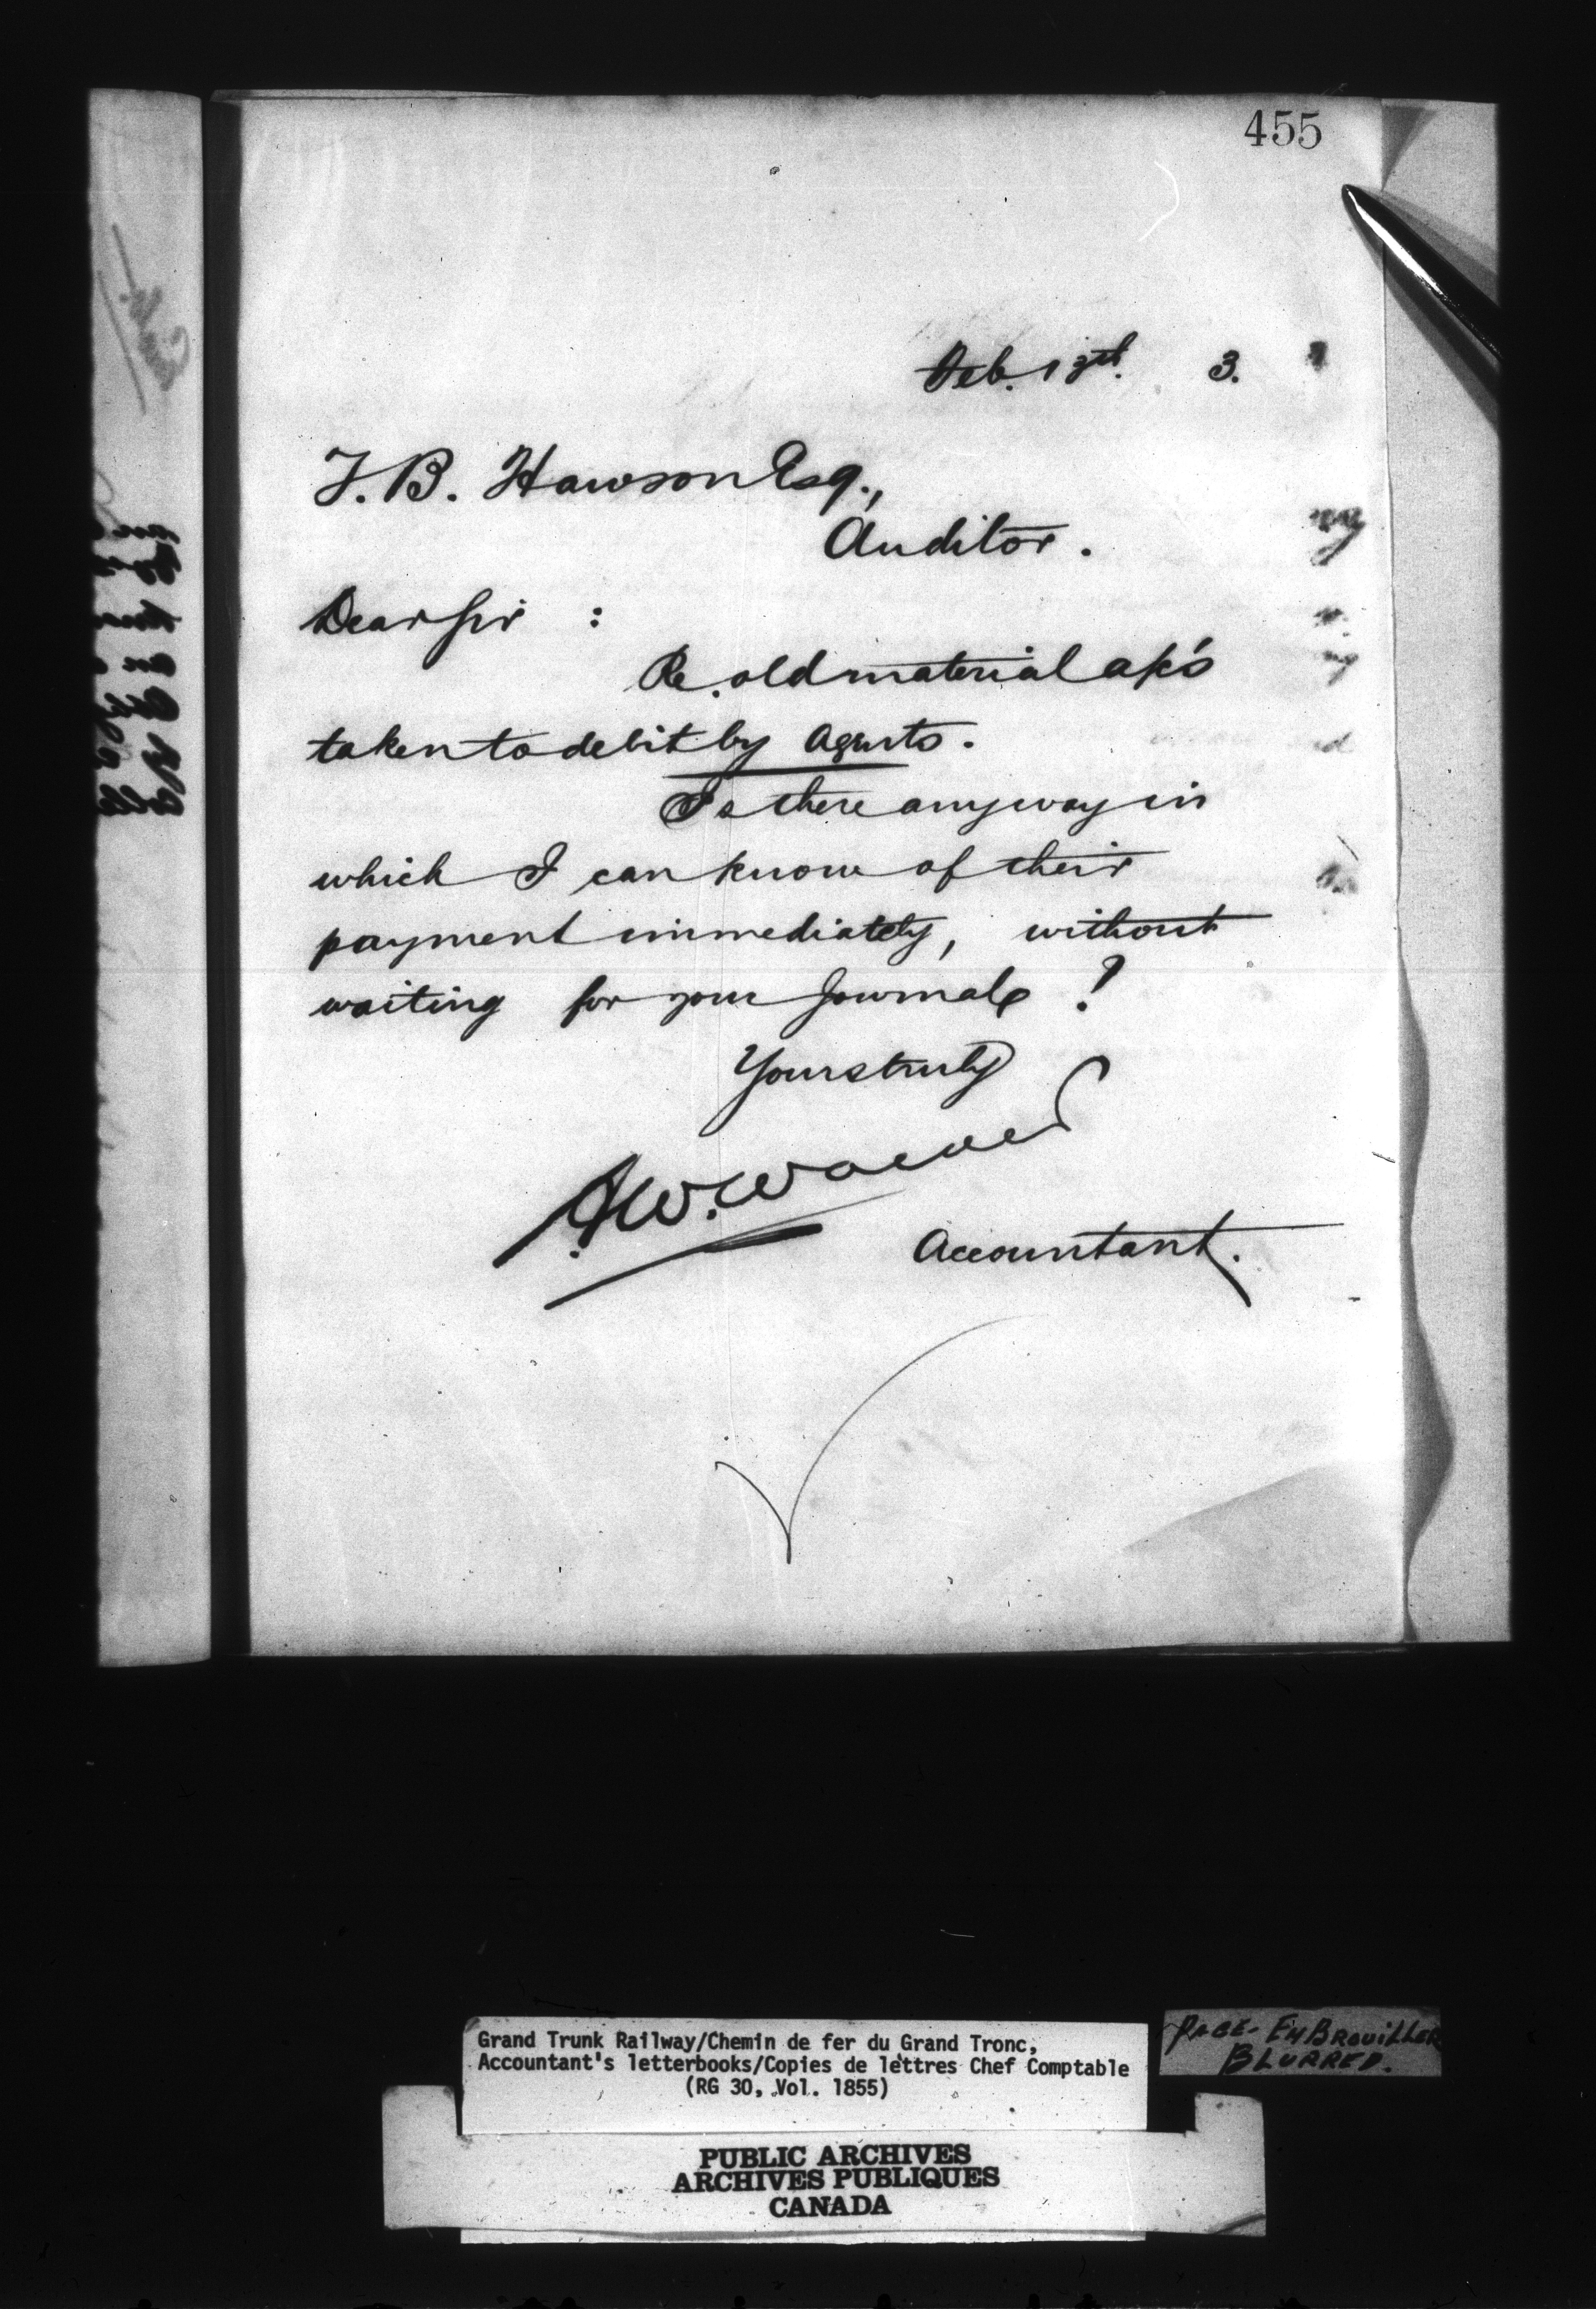 455
Feb. 13th. 3.
T. B. Hawson Esq.,
Auditor.
Dear Sir :
Re. old material a/c's
taken to debit by Agents.
Is there any way in
which I can know of their
payment immediately, without
waiting for your Journals ?
Yours truly
Accountant.
Grand Trunk Railway/Chemin de fer du Grand Tronc,
Accountant's letterbooks/Copies de lettres Chef Comptable
(RG 30, Vol. 1855)
PAGE - EMBROUILLER
BLURRED.
PUBLIC ARCHIVES
ARCHIVES PUBLIQUES
CANADA